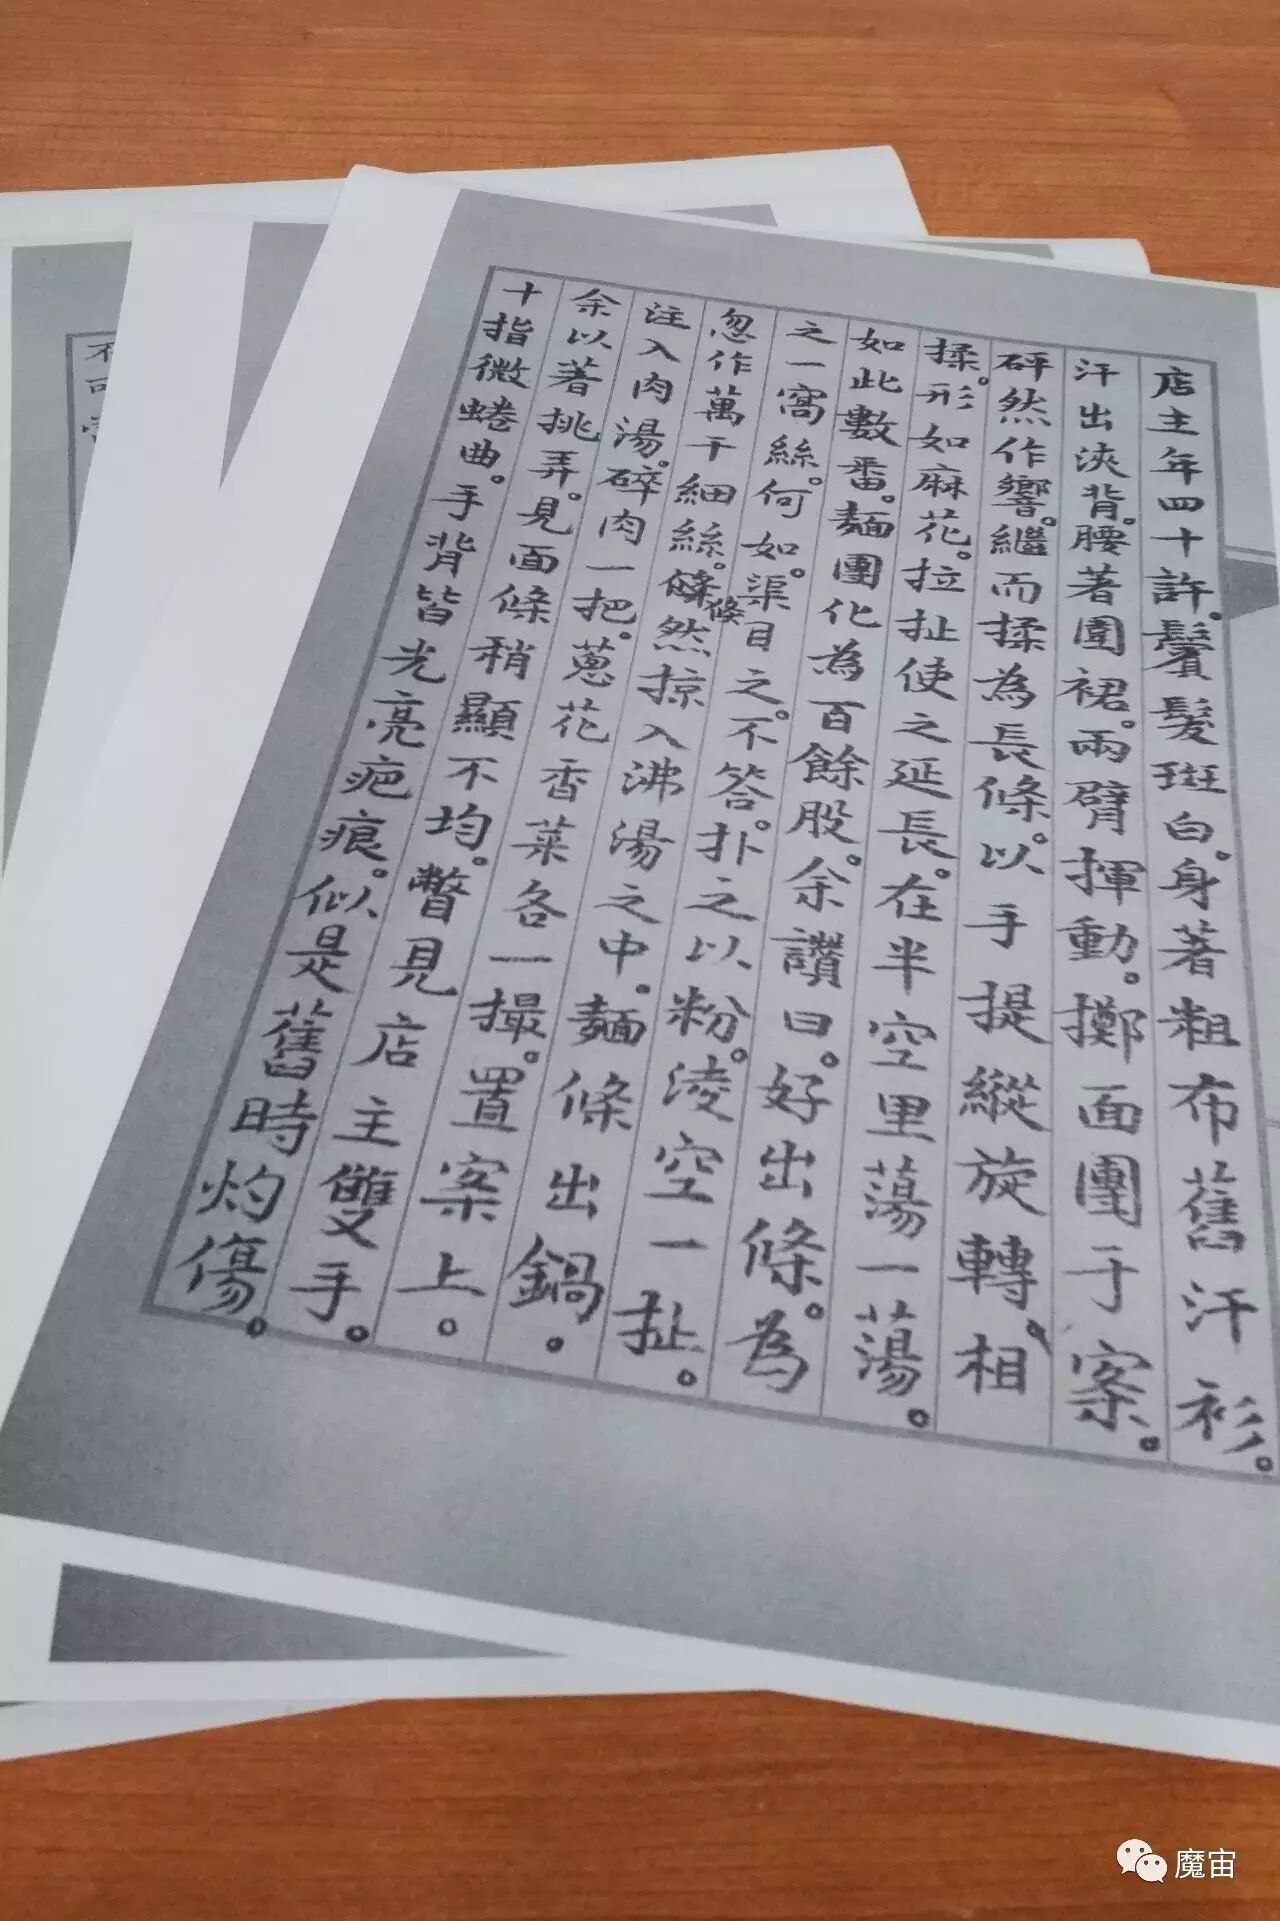 店主年四十許。鬢髮斑白。身著粗布舊汗衫。
汗出浹背。腰著圍裙。兩臂揮動。擲面團于案。
砰然作響。繼而揉為長條。以手提縱旋轉、相
揉。形如麻花。拉扯使之延長。在半空里蕩一蕩。
如此數番。麵團化為百餘股。余讚曰。好出條。為
之一窩絲。何如。渠目之。不答。扑之以粉。淩空一扯。
忽作萬千細絲。倏然掠入沸湯之中。麵條出鍋。
注入肉湯。碎肉一把。蔥花香菜各一撮。置案上。
余以著挑弄。見面條稍顯不均。瞥見店主雙手。
十指微蜷曲。手背皆光亮疤痕。似是舊時灼傷。
不可
魔宙